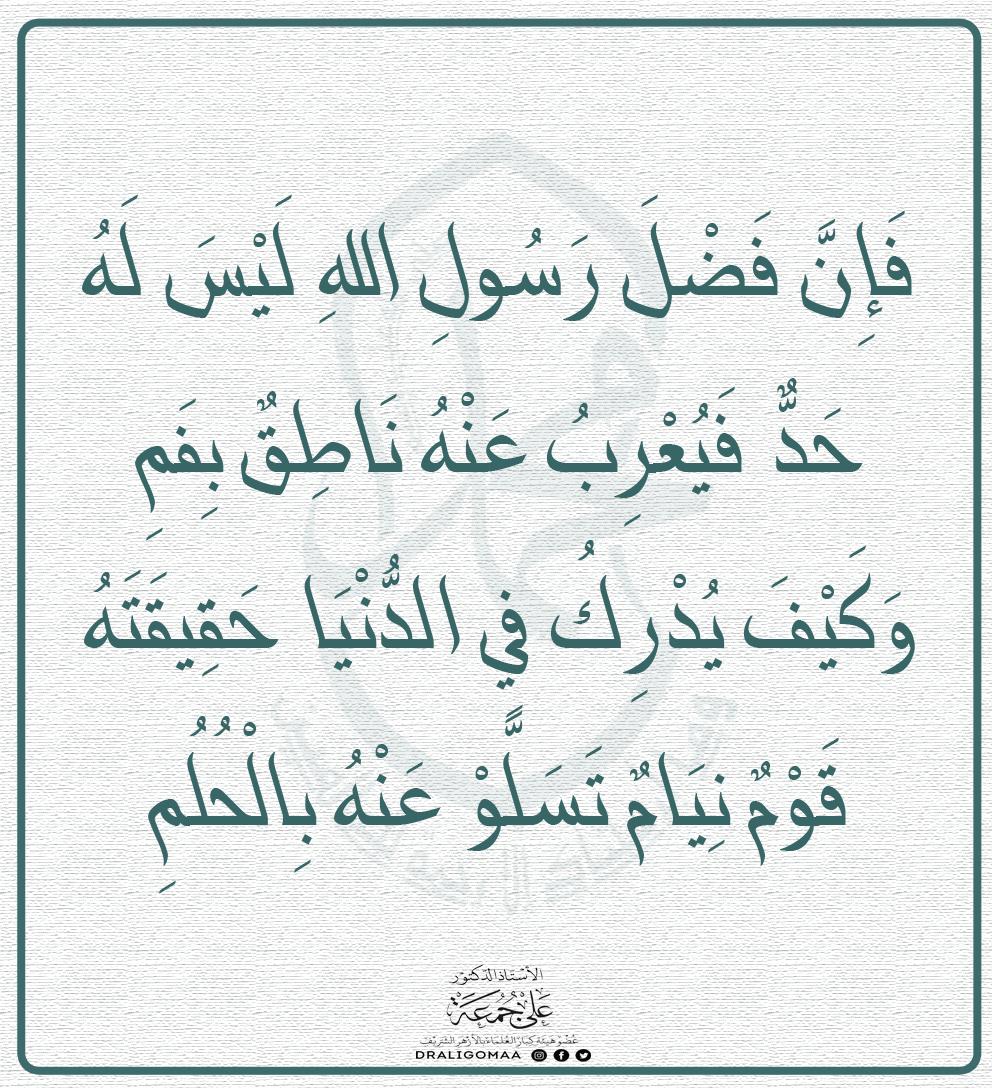 فَإِنَّ فَضْلَ رَسُولِ اللهِ لَيْسَ لَهُ
حَدٌّ فَيُعْرِبُ عَنْهُ نَاطِقٌ بِفَمِ
وَكَيْفَ يُدْرِكُ فِي الدُّنْيَا حَقِيقَتَهُ
قَوْمٌ نِيَامٌ تَسَلَّوْ عَنْهُ بِالْحُلُمِ
الأستاذ الدكتور
علي جمعة
عضو هيئة كبار العلماء بالأزهر الشريف
DRALIGOMAA